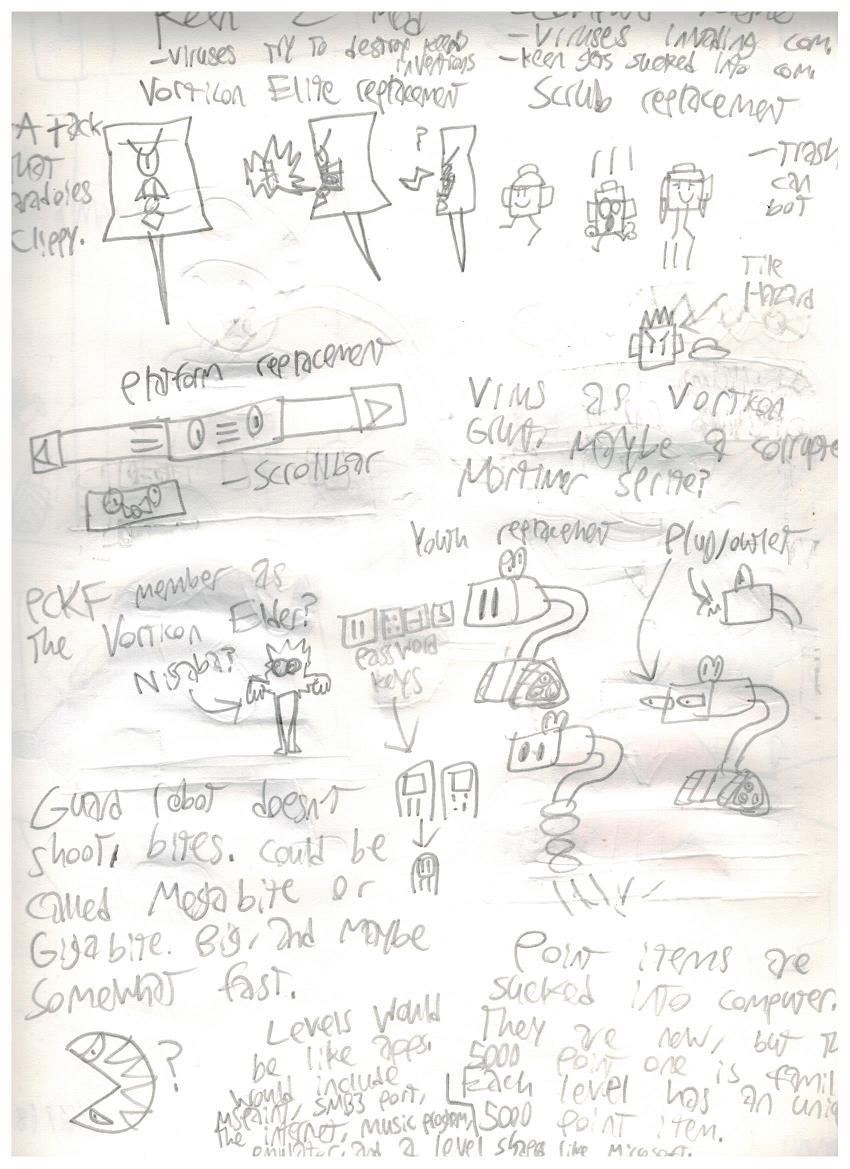 Keen 2 Mod
-Viruses try to destroy Keen's
inventions
-Viruses invading com.
-Keen gets sucked into com.
Vorticon Elite replacement
Scrub replacement
A Tack
that
parodies
Clippy.
?
-Trash
can
bot
Tile
Hazard
Platform replacement
-Scrollbar
Virus as Vorticon
Grunt, Maybe a corrupte
Mortimer sprite?
Youth replacement
Plug/outlet
PCKF member as
The Vorticon Elder?
Nisaba?
password
keys
Guard robot doesn't
shoot, bites. Could be
called Megabite or
Gigabite. Big, and Maybe
Somewhat fast.
?
Levels would
be like apps.
would include
mspaint, SMB3 port,
the internet, music program,
emulator, and a level shapes like Microsoft.
Point items are
sucked into computer.
They are new, but Th
5000 point one is famil
Each level has an uniq
5000 point item.